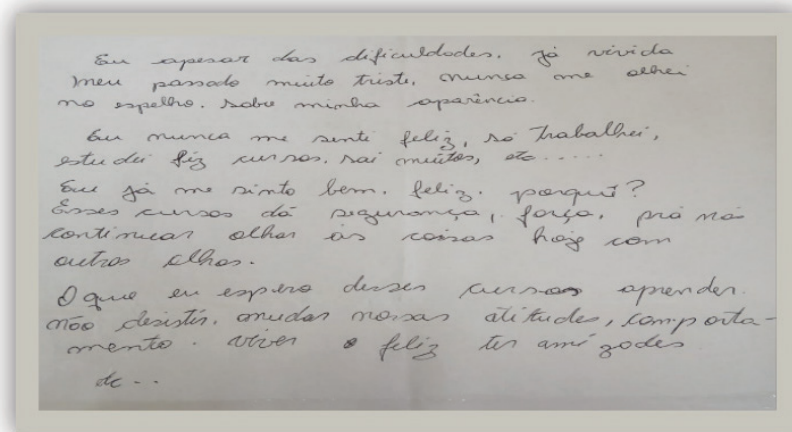 Eu apesar das dificuldades. já vivida
meu passado muito triste, nunca me olhei
no espelho. sobre minha aparência.
Eu nunca me senti feliz, só trabalhei,
estudei fiz cursos. sai muitos, etc.....
Eu já me sinto bem. feliz. porquê?
Esses cursos dá segurança, força, prá nós
continuar olhar as coisas hoje com
outros olhos.
O que eu espero desses cursos aprender.
não desistir. mudar nossas atitudes, comporta-
mento. viver e feliz ter amizades
etc..